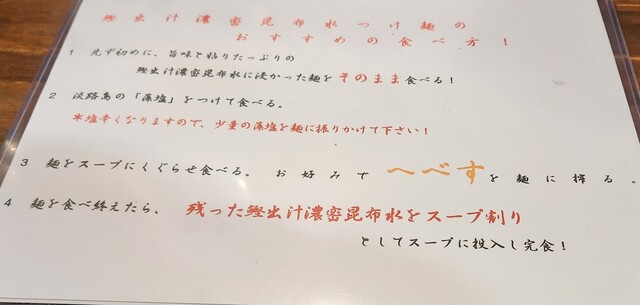 鰹出汁濃密昆布水つけ麺の
おすすめの食べ方！
1 先ず初めに、旨味と粘りたっぷりの
鰹出汁濃密昆布水に浸かった麺をそのまま食べる！
2 淡路島の「藻塩」をつけて食べる。
※塩辛くなりますので、少量の藻塩を麺に振りかけて下さい！
3 麺をスープにくぐらせ食べる。お好みでへべすを麺に搾る。
4 麺を食べ終えたら、残った鰹出汁濃密昆布水をスープ割り
としてスープに投入し完食！